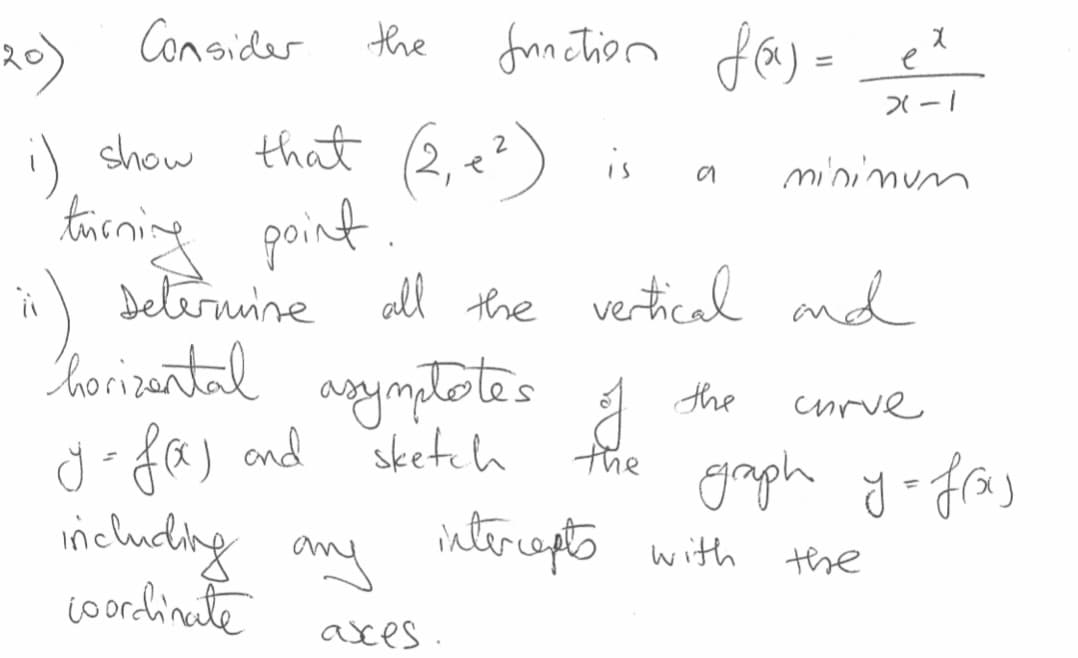 20) Consider the function f(x) = e^x / (x - 1)
i) show that (2, e^2) is a minimum
turning point.
ii) Determine all the vertical and
horizontal asymptotes of the curve
y = f(x) and sketch the graph y = f(x)
including any intercepts with the
coordinate axes.